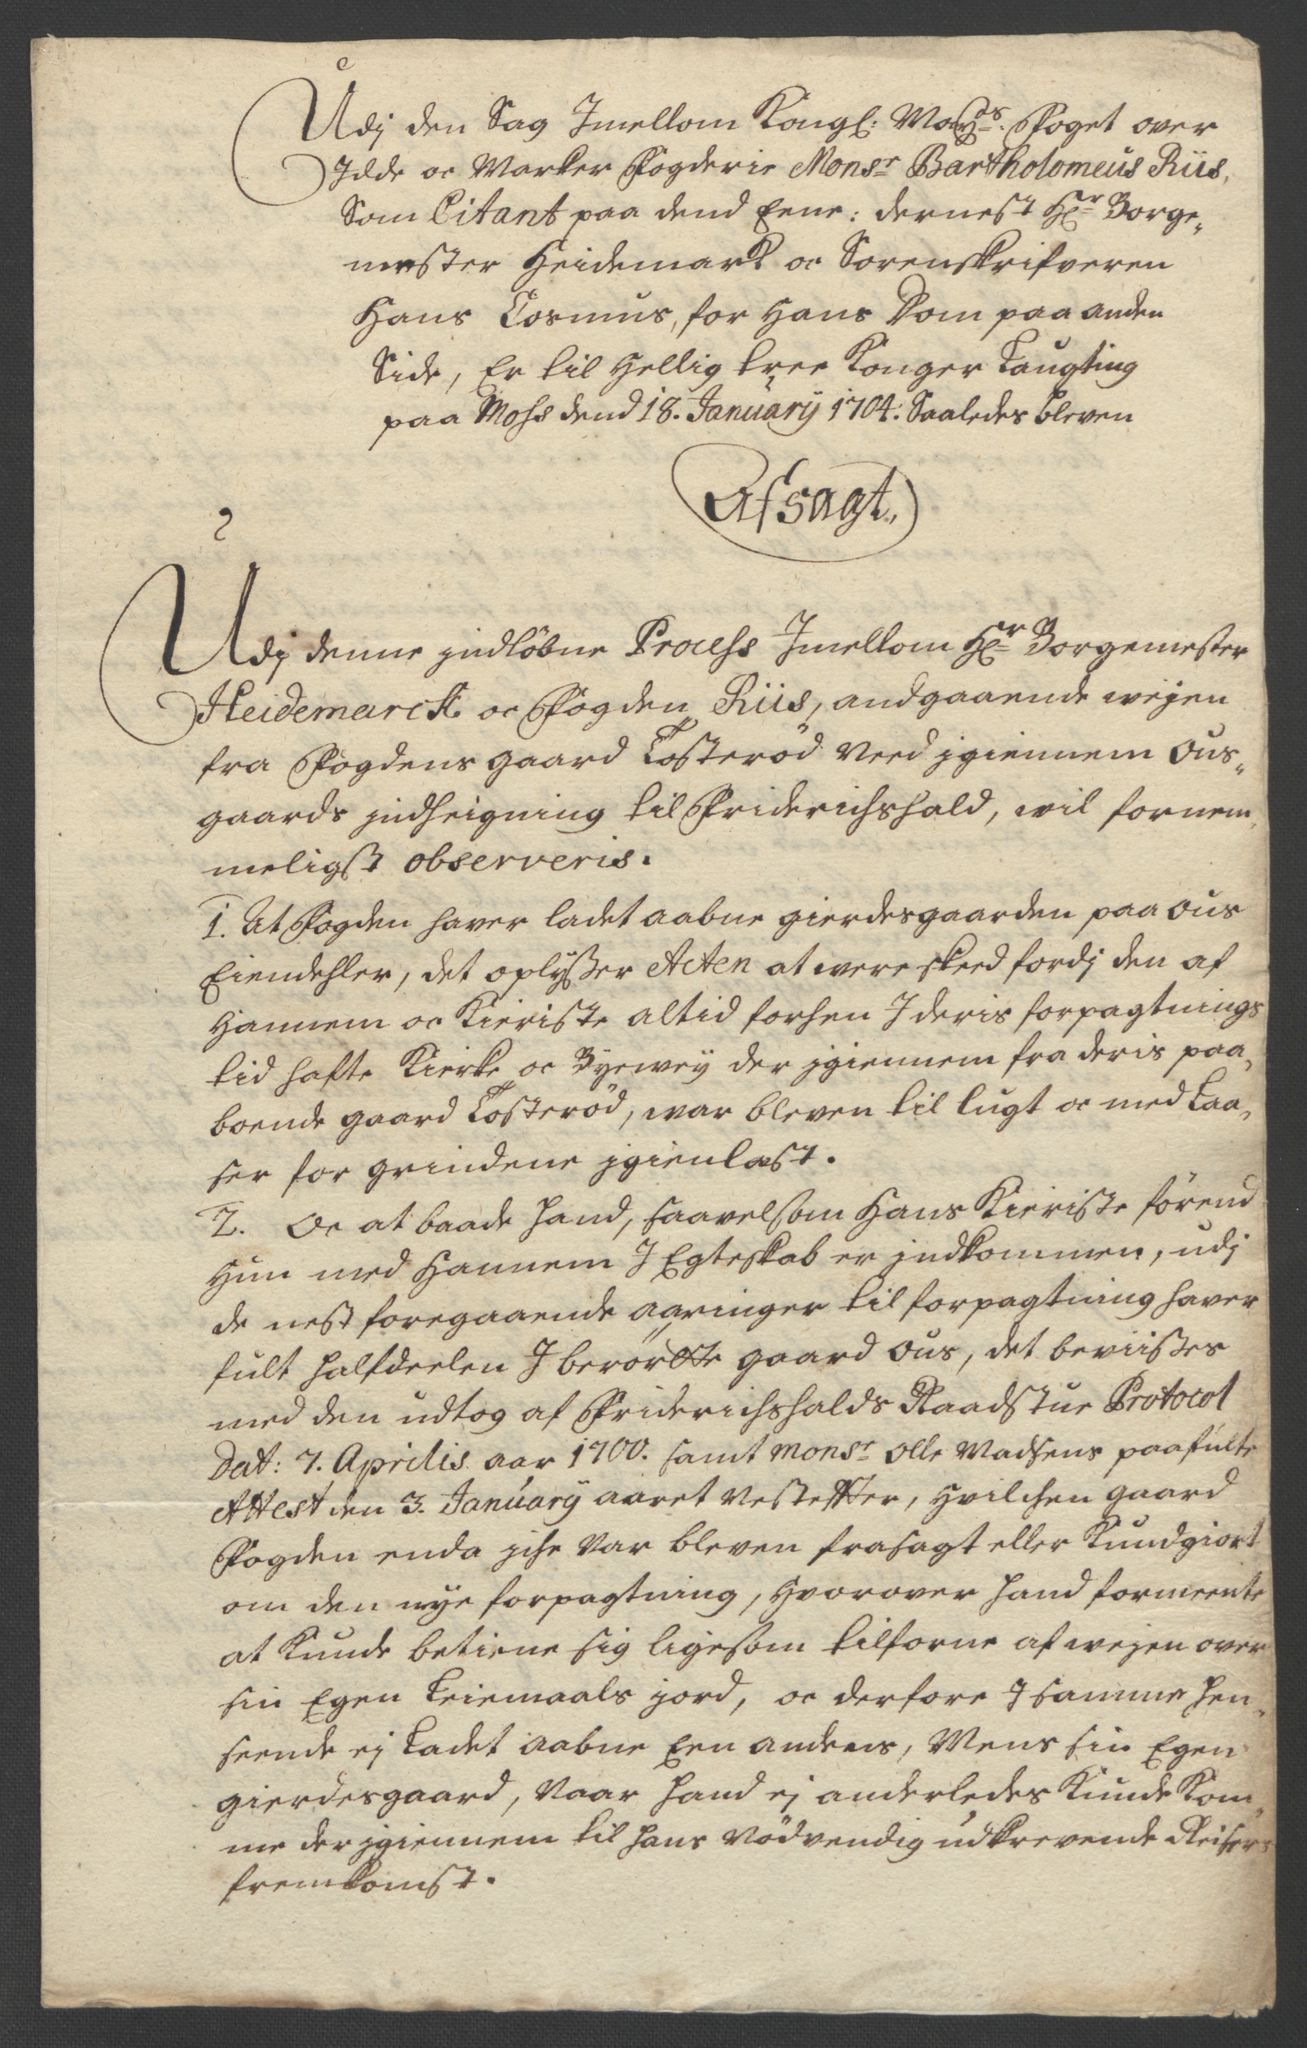 Udj den Sag Imellom Kongl: May:ts Foget over
Idde oc Marker Fogderie Monsr Bartholomeus Riis,
Som Citant paa dend Eene: dernest Hr Borge„
mester Heidemark oc Sorenskrifveren
Hans Cosmus, for Hans Dom paa anden
Side, Er til Hellig tree Konger Laugting
paa Moss dend 18. January 1704. Saaledes bleven
Afsagt„
Udj denne jndløbne Process Imellom Hr Borgemester
Heidemarck oc Fogden Riis, andgaaende wejen
fra Fogdens gaard Tosterød Need jgiennem Ous„
gaards jndheigning til Friderichshald, wil fornem„
meligst observeris.
1. At Fogden haver ladet aabne gierdesgaarden paa Ous
Eiendehler, det oplyßer Acten at were skeed fordj den af
Hannem oc Kieriste altid forhen I deris forpagtnings
tid hafte Kierke oc Byewey der jgiennem fra deris paa„
boende gaard Tosterød, war bleven til lugt oc med Laa„
ser for grindene jgienlast.
2. Oc at baade hand, saavelsom Hans Kieriste førend
Hun med Hannem I Egteskab er jndkommen, udj
de nest foregaaende aaringer til forpagtning haver
fult halfdeelen I berørte gaard Ous, det beviißes
med den udtog af Friderichshalds Raadstue Protocol
Dat: 7. Aprilis aar 1700. samt Monsr Olle Madsens paafulte
Attest den 3. January aaret Nestefter, Hvilchen gaard
Fogden enda jche Var bleven frasagt eller Kundgiort
om den nye forpagtning, Hvorover hand formeente
at Kunde betiene sig ligesom tilforne af wejen over
sin Egen Leiemaals jord, oc derfore I samme hen„
seende ej Ladet aabne Een andens, Mens sin Egen
gierdesgaard, Naar hand ej anderledes Kunde Kom„
me der jgiennem til hans Nødvendig udkrevende Reisers
fremkomst.